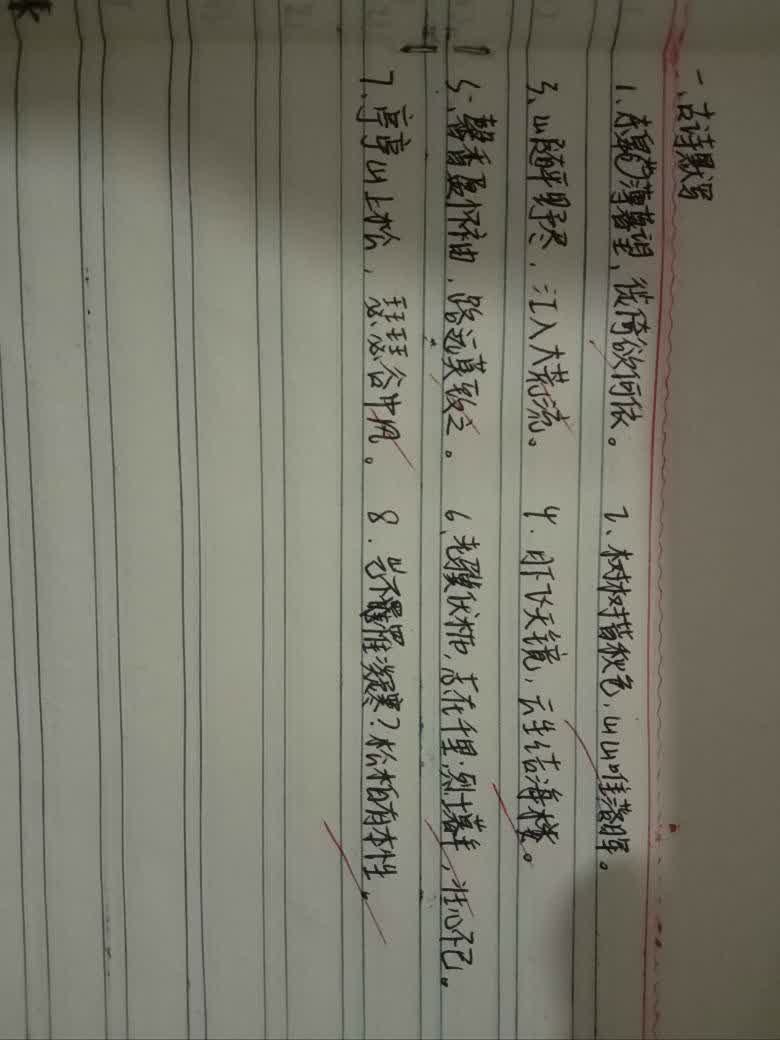 一、古诗默写
1、东皋薄暮望，徙倚欲何依。 2、树树皆秋色，山山唯落晖。
3、山随平野尽，江入大荒流。 4、月下飞天镜，云生结海楼。
5、馨香盈怀袖，路远莫致之。 6、老骥伏枥，志在千里；烈士暮年，壮心不已。
7、亭亭山上松，瑟瑟谷中风。 8、岂不罹凝寒？松柏有本性。